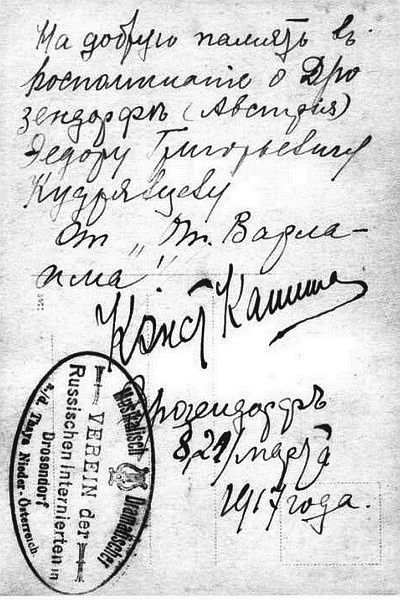 На добрую память въ
воспоминанiе о Дро
зендорфѣ (Австрiя)
Федору Григорьевичу
Кудрявцеву
От „Ѳт. Варла-
ама"!
Конст
Дрозендорфъ
8/21/марта
1917 года.
Musikalisch Dramatischer
VEREIN der
Russischen Internierten in
Drosendorf
a/d. Thaya Nieder-Österreich.